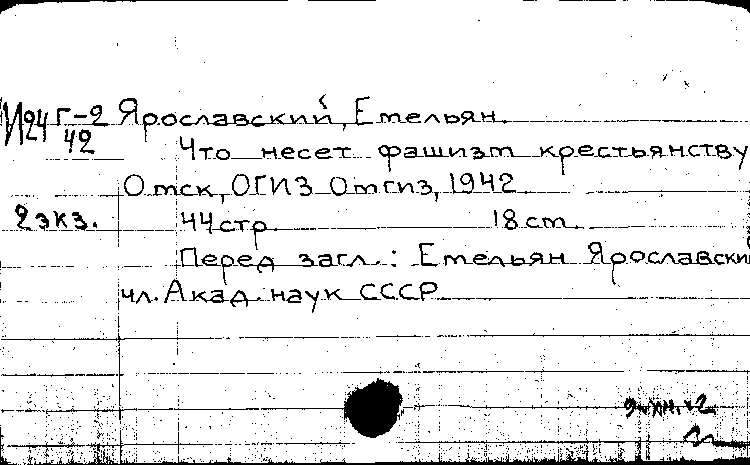 И24 Г-2 Ярославский, Емельян.
42
Что несет фашизм крестьянству
Омск, ОГИЗ Омгиз, 1942
2 экз. 44 стр. 18 cm.
Перед загл.: Емельян Ярославский
чл. Акад. наук СССР